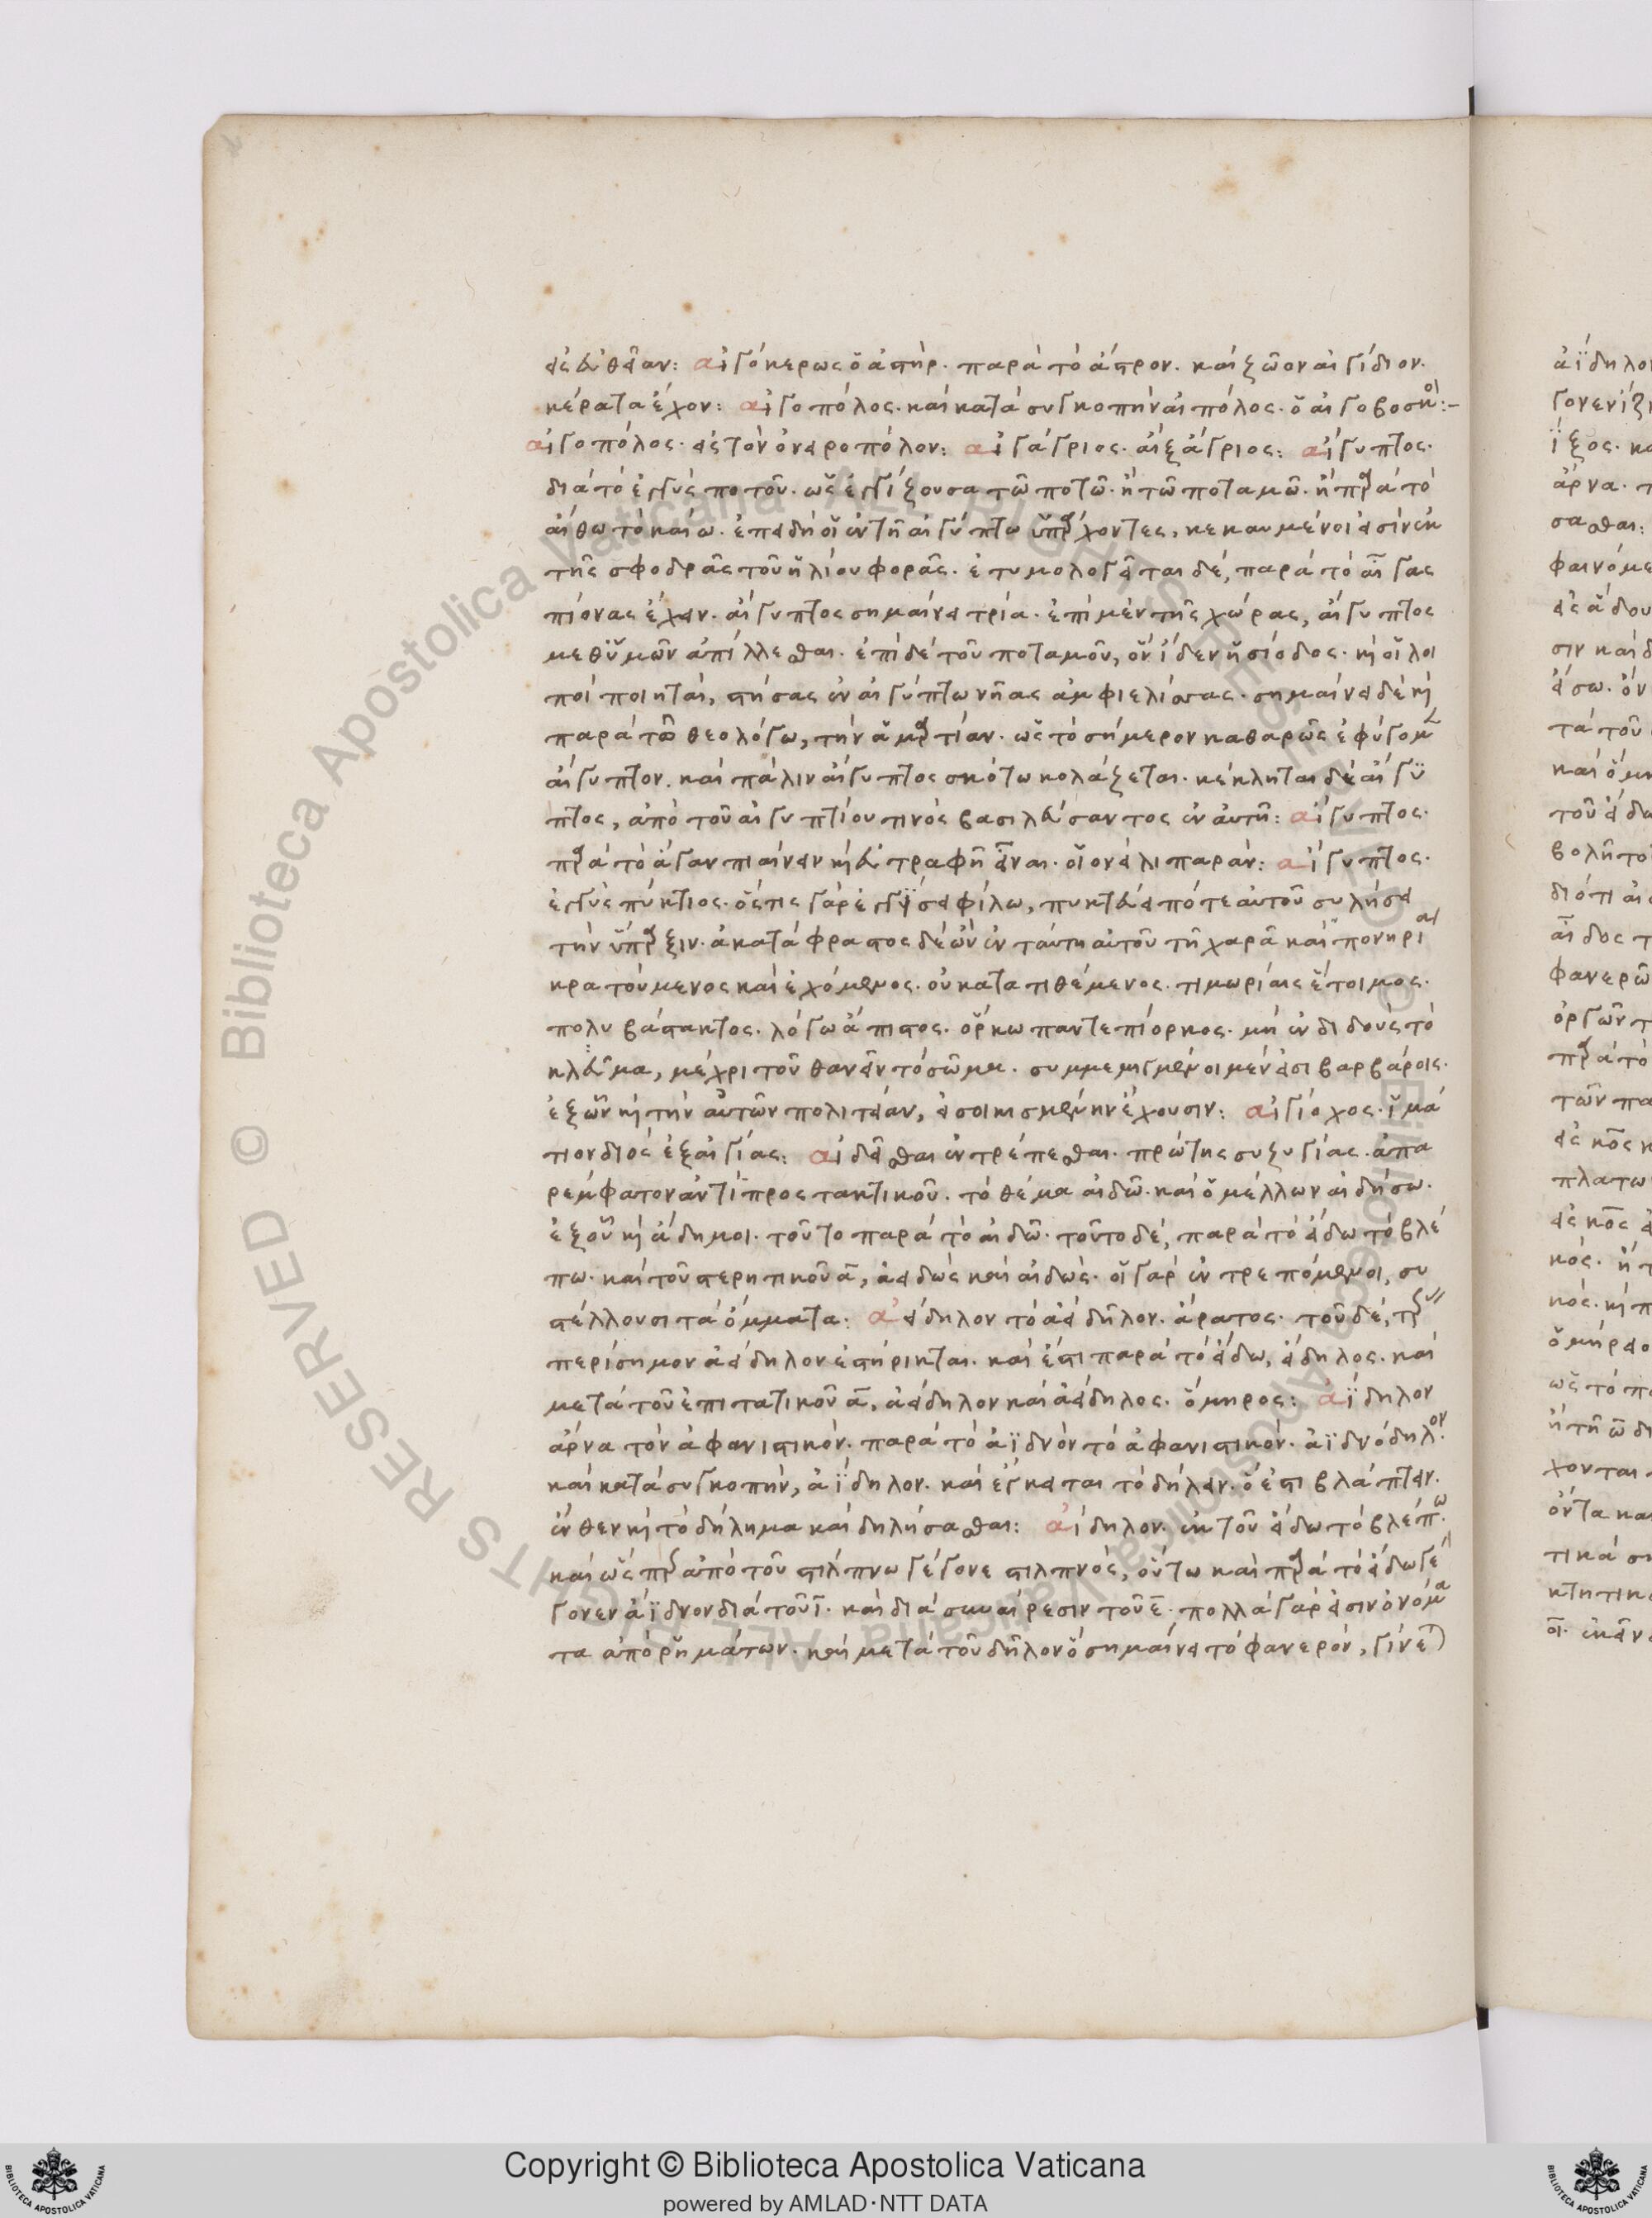 εἰς εὐθεῖαν: αἰγόκερως ὁ ἀστήρ. παρὰ τὸ ἄστρον. καὶ ζῶον αἰγίδιον.
κέρατα ἔχον: αἰγοπόλος. καὶ κατὰ συγκοπὴν αἰπόλος. ὁ αἰγοβοσκός:-
αἰγοπόλος. εἰς τὸν ὀνειροπόλον: αἰγάγριος. αἲξ ἄγριος: αἴγυπτος.
διὰ τὸ ἐγγὺς ποτοῦ. ὡς ἐγγίζουσα τῶ ποτῶ. ἢ τῶ ποταμῶ. ἢ παρὰ τὸ
αἴθω τὸ καίω. ἐπειδὴ οἱ ἐν τῆ αἰγύπτω ὑπάρχοντες, κεκαυμένοι εἰσὶν ἐκ
τῆς σφοδρᾶς τοῦ ἡλίου φορᾶς. ἐτυμολογεῖται δὲ, παρὰ τὸ αἶγας
πίονας ἔχειν. αἴγυπτος σημαίνει τρία. ἐπὶ μὲν τῆς χώρας, αἴγυπτος
μεθ' ὑμῶν ἀπίλλεσθαι. ἐπὶ δὲ τοῦ ποταμοῦ, ὃν οἶδεν ἡσίοδος. καὶ οἱ λοι
ποὶ ποιηταὶ, στήσας ἐν αἰγύπτω νῆας ἀμφιελίσσας. σημαίνει δὲ καὶ
παρὰ τῶ θεολόγω, τὴν ἁμαρτίαν. ὡς τὸ σήμερον καθαρῶς ἐφύγομεν
αἴγυπτον. καὶ πάλιν αἴγυπτος σκότω κολάζεται. κέκληται δὲ αἴγυ
πτος, ἀπὸ τοῦ αἰγυπτίου τινὸς βασιλεύσαντος ἐν αὐτῆ: αἴγυπτος.
παρὰ τὸ ἄγαν πιαίνειν καὶ εὐτραφῆ εἶναι. οἱονεὶ λιπαράν: αἴγυπτος.
ἐγγὺς πύκτιος. ὅστις γὰρ ἐγγυήσει φίλω, πυκτεύει ποτὲ αὐτοῦ συλῆσαι
τὴν ὕπαρξιν. ἀκατάφραστος δὲ ὢν ἐν ταύτη αὐτοῦ τῆ χαρᾶ καὶ πονηρία
κρατούμενος καὶ ἐχόμενος. οὐ κατατιθέμενος. τιμωρίαις ἕτοιμος.
πολυβάστακτος. λόγω ἄπιστος. ὅρκω παντεπίορκος. μὴ ἐνδιδοὺς τὸ
κλεῖμα, μέχρι τοῦ θανεῖν τὸ σῶμα. συμμεμιγμένοι μέν εἰσι βαρβάροις.
ἐξ ὧν καὶ τὴν αὐτῶν πολιτείαν, εἰσοικισμένην ἔχουσιν: αἰγίοχος. ἱμά
τιον διὸς ἐξ αἰγίας: αἰδεῖσθαι ἐντρέπεσθαι. πρώτης συζυγίας. ἀπα
ρέμφατον ἀντὶ προστακτικοῦ. τὸ θέμα αἰδῶ. καὶ ὁ μέλλων αἰδήσω.
ἐξ οὗ καὶ ἄδημοι. τοῦτο παρὰ τὸ αἰδῶ. τοῦτο δὲ, παρὰ τὸ εἴδω τὸ βλέ
πω. καὶ τοῦ στερητικοῦ α, ἀειδὼς καὶ αἰδώς. οἱ γὰρ ἐντρεπόμενοι, συ
στέλλουσι τὰ ὄμματα: ἀείδηλον τὸ ἀεὶ δῆλον. ἄρατος. τοῦ δὲ,
περίσημον ἀείδηλον ἐστήρικται. καὶ ἔστι παρὰ τὸ εἴδω, εἴδηλος. καὶ
μετὰ τοῦ ἐπιτατικοῦ α, ἀείδηλον καὶ ἀείδηλος. ὅμηρος: ἀΐδηλον
ἄρνα τὸν ἀφανιστικόν. παρὰ τὸ ἀϊδνὸν τὸ ἀφανιστικόν. ἀϊδνόδηλον.
καὶ κατὰ συγκοπὴν, ἀΐδηλον. καὶ ἔγκειται τὸ δήλειν. ὅ ἐστι βλάπτειν.
ἔνθεν καὶ τὸ δήλημα καὶ δηλήσασθαι: ἀίδηλον. ἐκ τοῦ εἴδω τὸ βλέπω.
καὶ ὥσπερ ἀπὸ τοῦ στίλπνω γέγονε στιλπνὸς, οὕτω καὶ παρὰ τὸ εἴδω γέ
γονεν ἀΐδνον διὰ τοῦ ι. καὶ διὰ συναίρεσιν τοῦ ε. πολλὰ γάρ εἰσιν ὀνόμα
τα ἀπὸ ῥημάτων. καὶ μετὰ τοῦ δῆλον ὃ σημαίνει τὸ φανερὸν, γίνεται